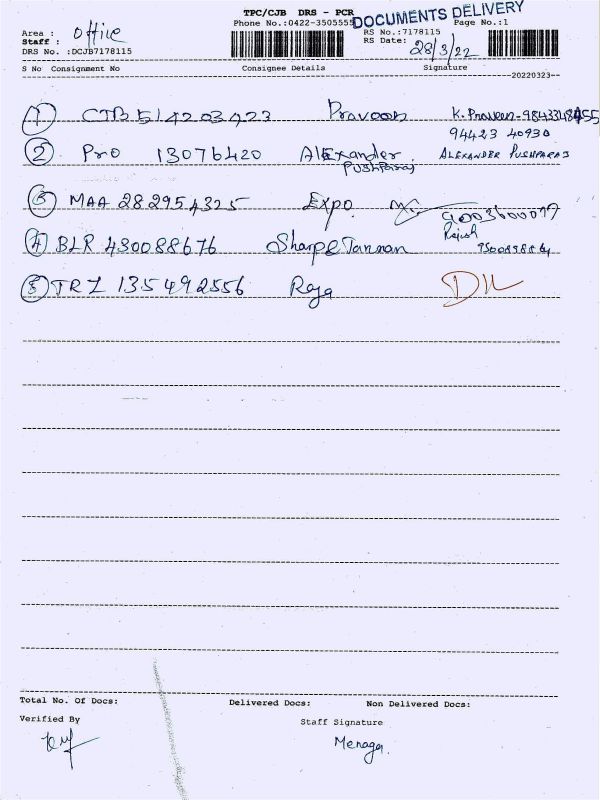 TPC/CJB DRS - PCR
DOCUMENTS DELIVERY
Phone No.:0422-3505555
Page No.:1
Area : Office
Staff :
DRS No. :DCJB7178115
RS No.:7178115
RS Date: 28/3/22
S No Consignment No Consignee Details Signature
20220323
1 CTB 514203423 Praveen K. Praveen-9843348455
94423 40930
2 Pro 13076420 Alexander ALEXANDER PUSHPARAJ
Pushparaj
3 MAA 282954325 Expo 9003600077
Rajesh
4 BLR 430088676 Sharp & Tannan
5 TRZ 135492556 Raja
Total No. Of Docs: Delivered Docs: Non Delivered Docs:
Verified By Staff Signature
Menaga